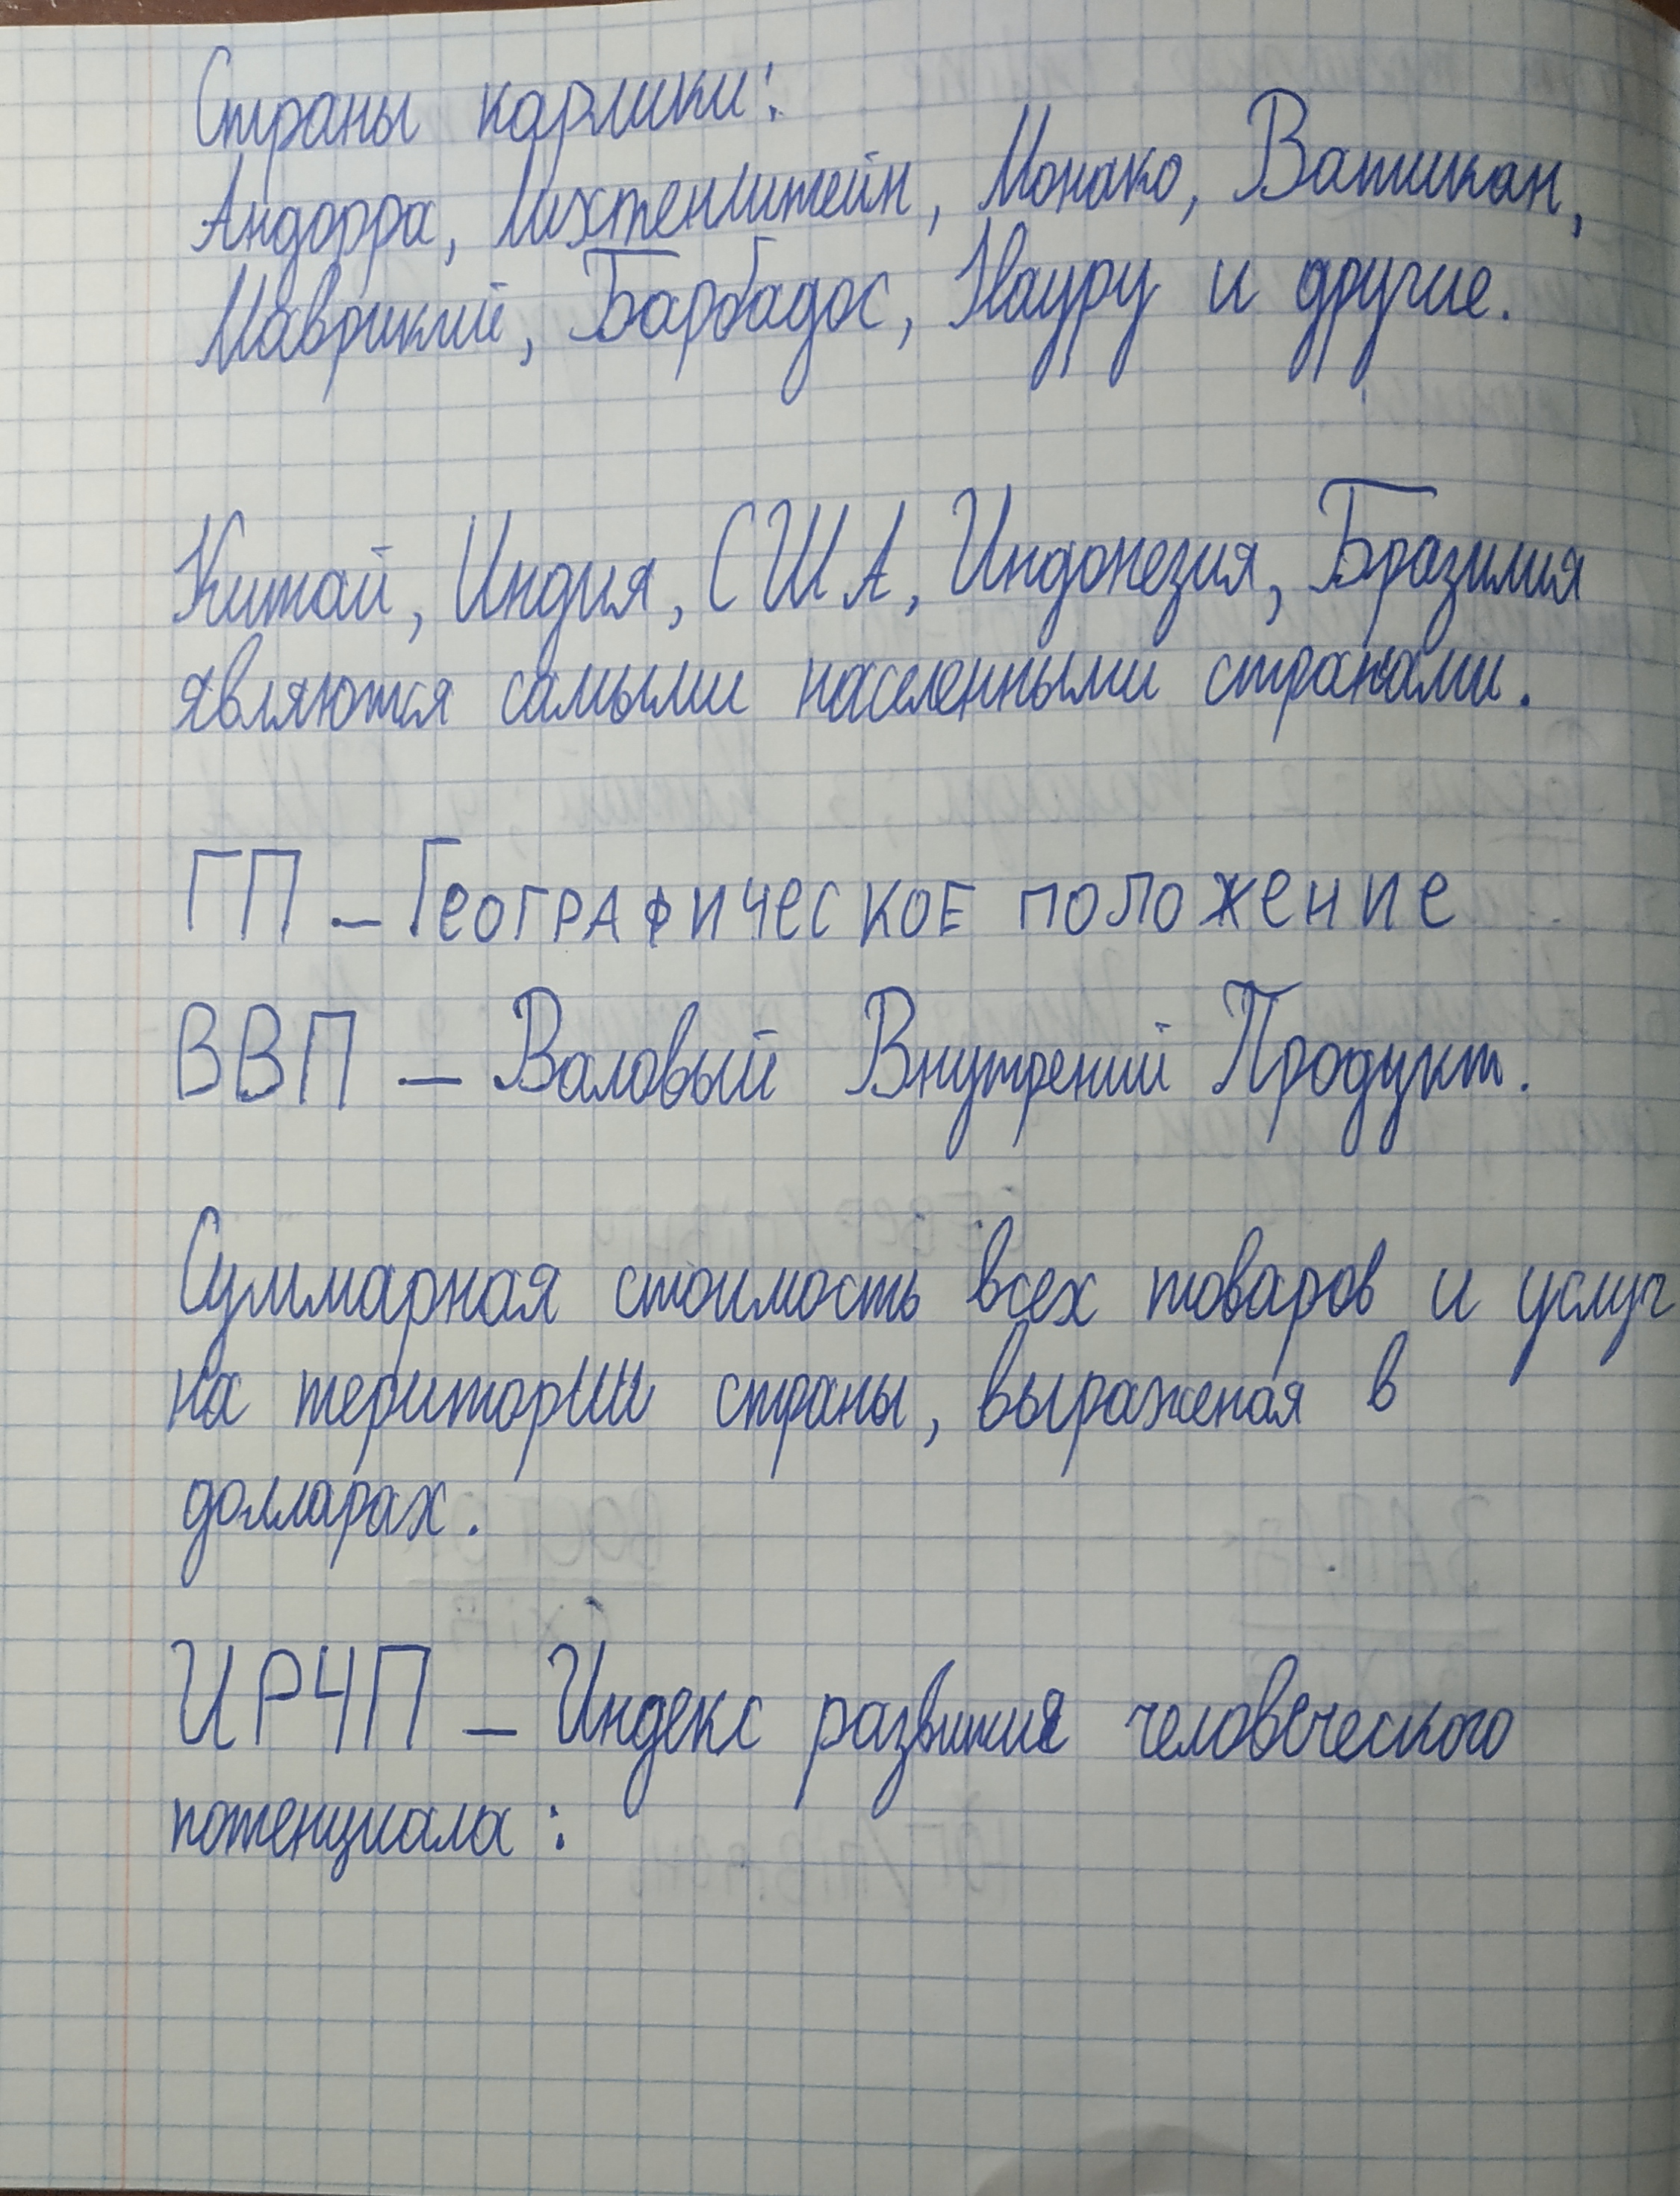 Страны карлики:
Андорра, Лихтенштейн, Монако, Ватикан,
Маврикий, Барбадос, Науру и другие.
Китай, Индия, США, Индонезия, Бразилия
являются самыми населенными странами.
ГП – Географическое положение
ВВП – Валовый Внутрений Продукт.
Суммарная стоимость всех товаров и услуг
на територии страны, выраженая в
долларах.
ИРЧП – Индекс развития человеческого
потенциала: